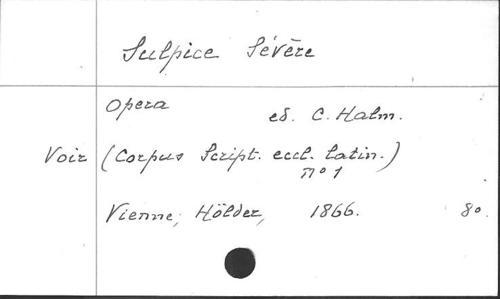 Sulpice Sévère
Opera ed. C. Halm.
Voir (Corpus Script. eccl. latin.)
n° 1
Vienne, Hölder, 1866. 8°.